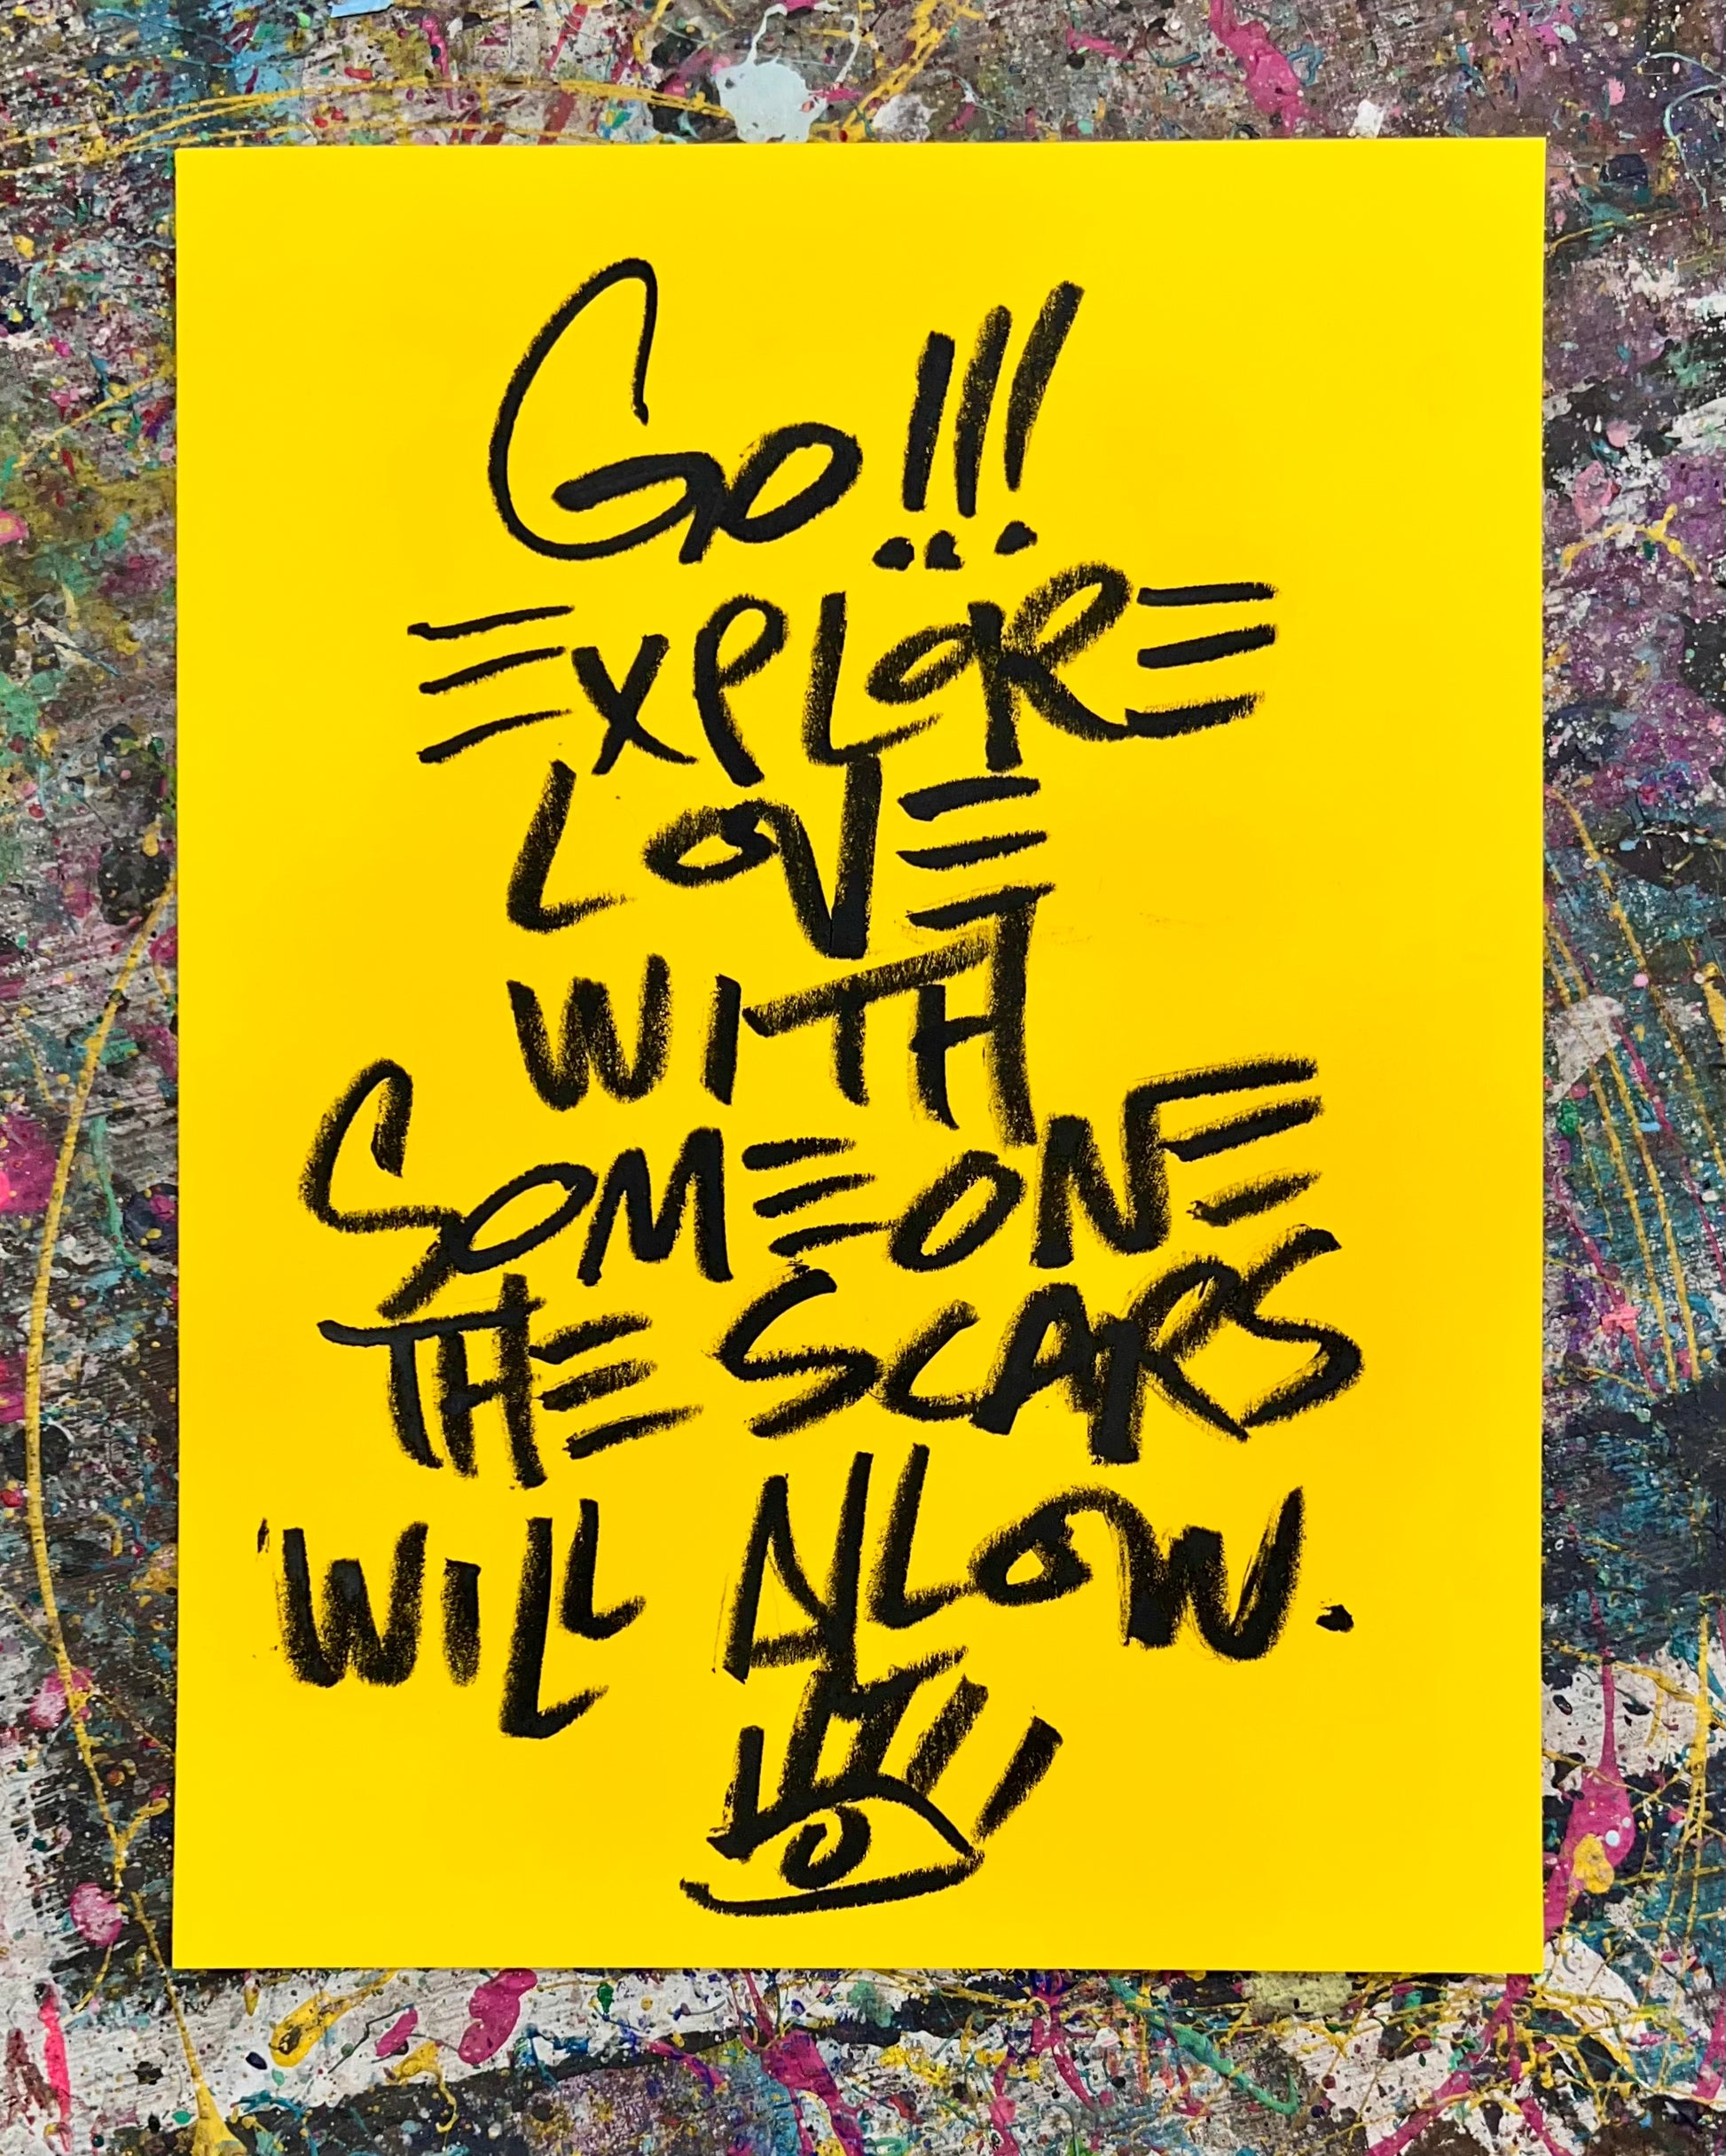 Go!!!
EXPLORE
LOVE
WITH
SOMEONE
THE SCARS
WILL ALLOW.